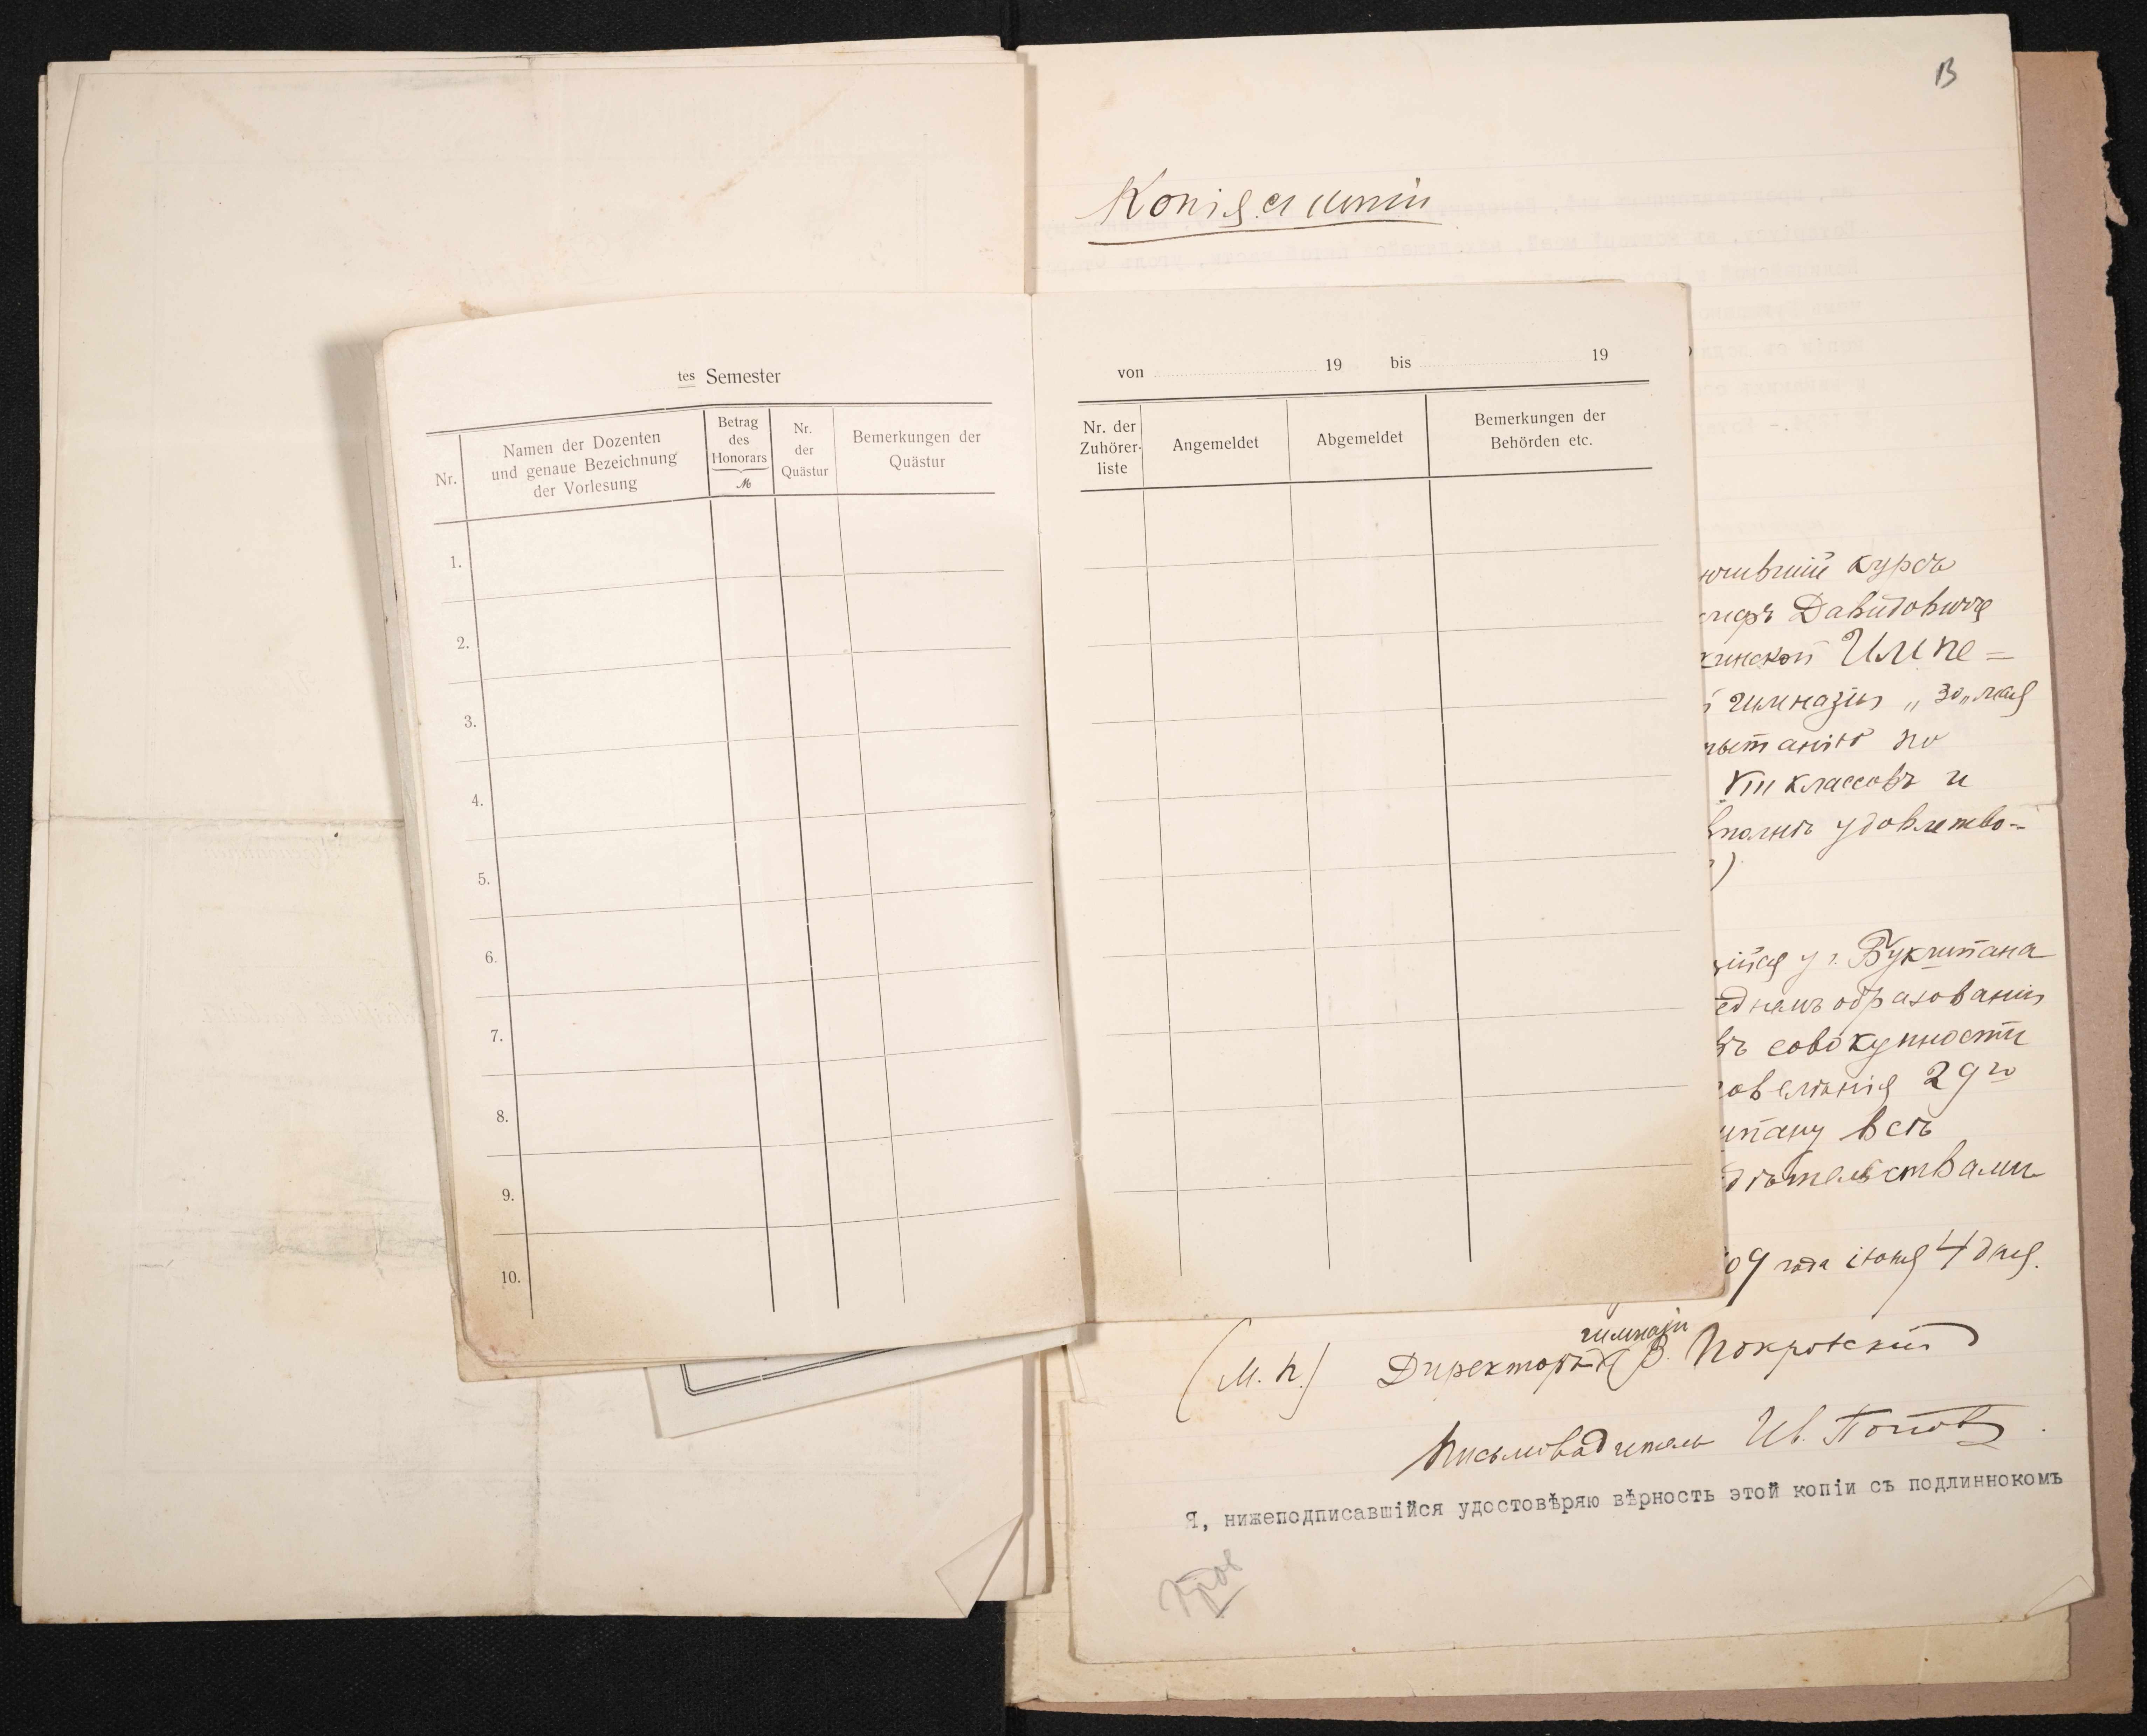 В
Копія съ копіи
tes Semester
von 19 bis 19
Nr.
Namen der Dozenten
und genaue Bezeichnung
der Vorlesung
Betrag
des
Honorars
M
Nr.
der
Quästur
Bemerkungen der
Quästur
Nr. der
Zuhörer-
liste
Angemeldet
Abgemeldet
Bemerkungen der
Behörden etc.
1.
2.
3.
4.
5.
6.
7.
8.
9.
10.
курсъ
Давидовича
Импе=
гимназіи „30„ мая
по
VIII классовъ и
удовлетво-
)
у г. Букштана
образованіи
совокупности
29го
всѣ
09 года іюня 4 дня.
гимназіи
(М. П.) Директоръ В. Покровскій
Письмоводитель Ив. Поповъ.
Я, нижеподписавшійся удостовѣряю вѣрность этой копіи съ подлиннокомъ